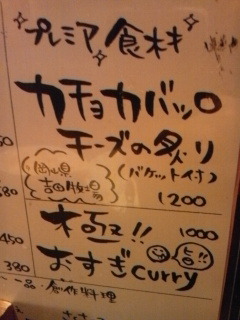 プレミア食材
カチョカバッロ
チーズの炙り
岡山県
吉田牧場
(バケット付)
1200
極!!
1000
おすぎcurry
旨!!
450
380
一品・創作料理